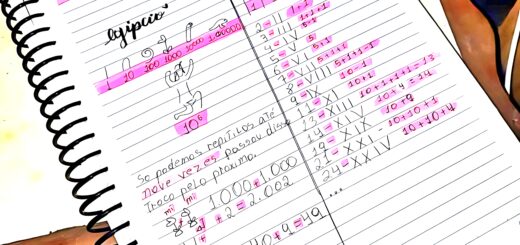 Egípcio
1 10 100 1000 10000
10⁶
Se podemos repitilos até
nove vezes passou disso
troco pelo próximo.
mil mil
1000+1.000
+2=2.002
40+9=49
1
2=II 1+1
3=III 1+1+1
4=IV 5-1
5=V 5
6=VI 5+1
7=VII 5+1+1
8=VIII 5+1+1+1
9=IX 10-1
13=XIII 10+1+1+1=13
14=XIV 10+4=14
19=XIX 10+9
21=XXI 10+10+1
24=XXIV 10+10+4
...